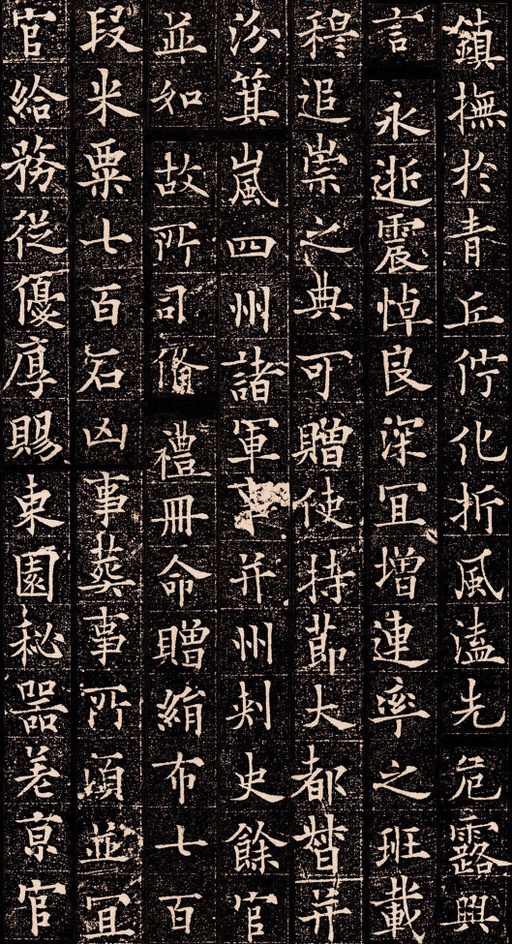 鎮撫於青丘佇化折風溘先危露興
言永逝震悼良深冝增連率之班載
穆追崇之典可贈使持節大都督并
汾箕嵐四州諸軍事并州刺史餘官
並如故所司俻禮冊命贈絹布七百
段米粟七百石凶事葬事所湏並冝
官給務從優厚賜東園秘器差京官